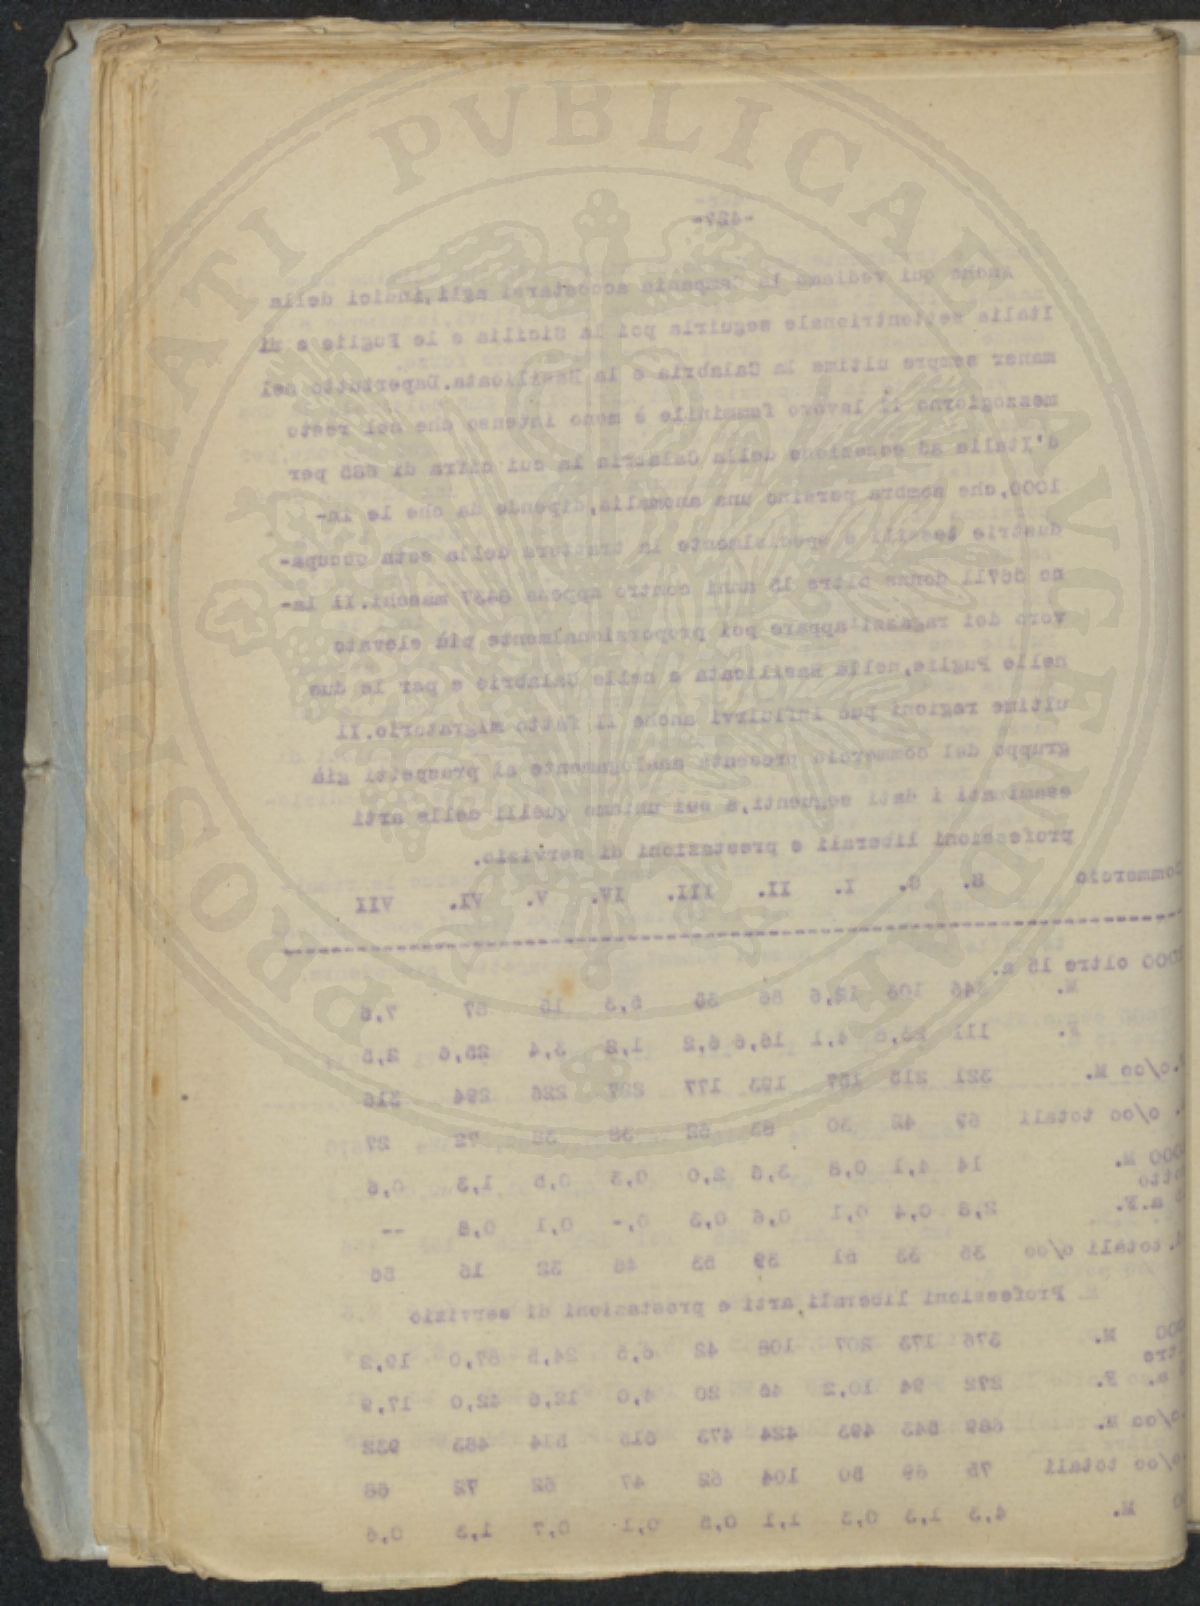 -427-
Anche qui vediamo la Campania accostarsi agli,indici della
Italia settentrionale seguirla poi la Sicilia e le Puglie e di
maner sempre ultime la Calabria e la Basilicata.Dapertutto nel
mezzogiorno il lavoro femminile è meno intenso che nel resto
d'Italia ad eccezione della Calabria la cui cifra di 685 per
1000,che sembra persino una anomalia,dipende da che le in-
dustrie tessili e specialmente la trattura della seta occupa-
no donne oltre 15 anni contro appena maschi.Il la-
voro dei ragazzi appare poi proporzionalmente più elevato
nelle Puglie,nella Basilicata e nelle Calabrie e per le due
ultime regioni può influirvi anche il fatto migratorio.Il
gruppo del commercio presenta analogamente ai prospetti già
esaminati i dati seguenti,a cui uniamo quelli delle arti
professioni liberali e prestazioni di servizio.
commercio S. S. I. II. III. IV. V. VI. VII
000 oltre 15 a.
M. 346 106 12,6 86 35 5,3 15 67 7,6
F. 111 4,1 16,6 6,2 1,2 3,4 25,6 2,5
o/oo M. 321 215 157 193 177 227 226 294 316
o/oo totali 67 42 30 83 52 38 38 72 27
000 M. 14 4,1 0,8 3,6 2,0 0,3 0,5 1,3 0,6
otto
a.F. 2,8 0,4 0,1 0,6 0,3 0,- 0,1 0,8 --
.totali o/oo 35 33 51 39 53 46 32 16 56
Professioni liberali,arti e prestazioni di servizio
00 M. 376 173 207 108 42 6,5 24,5 87,0 19,2
tre
a. F. 272 94 10,2 46 20 4,0 12,6 42,0 17,9
o/oo M. 689 543 493 424 473 615 514 483 932
o/oo totali 75 69 50 104 62 47 62 72 68
0 M. 4,3 1,3 0,3 1,1 0,5 0,1 0,7 1,3 0,6
PROSPERITATI PVBLICAE AVGENDAE